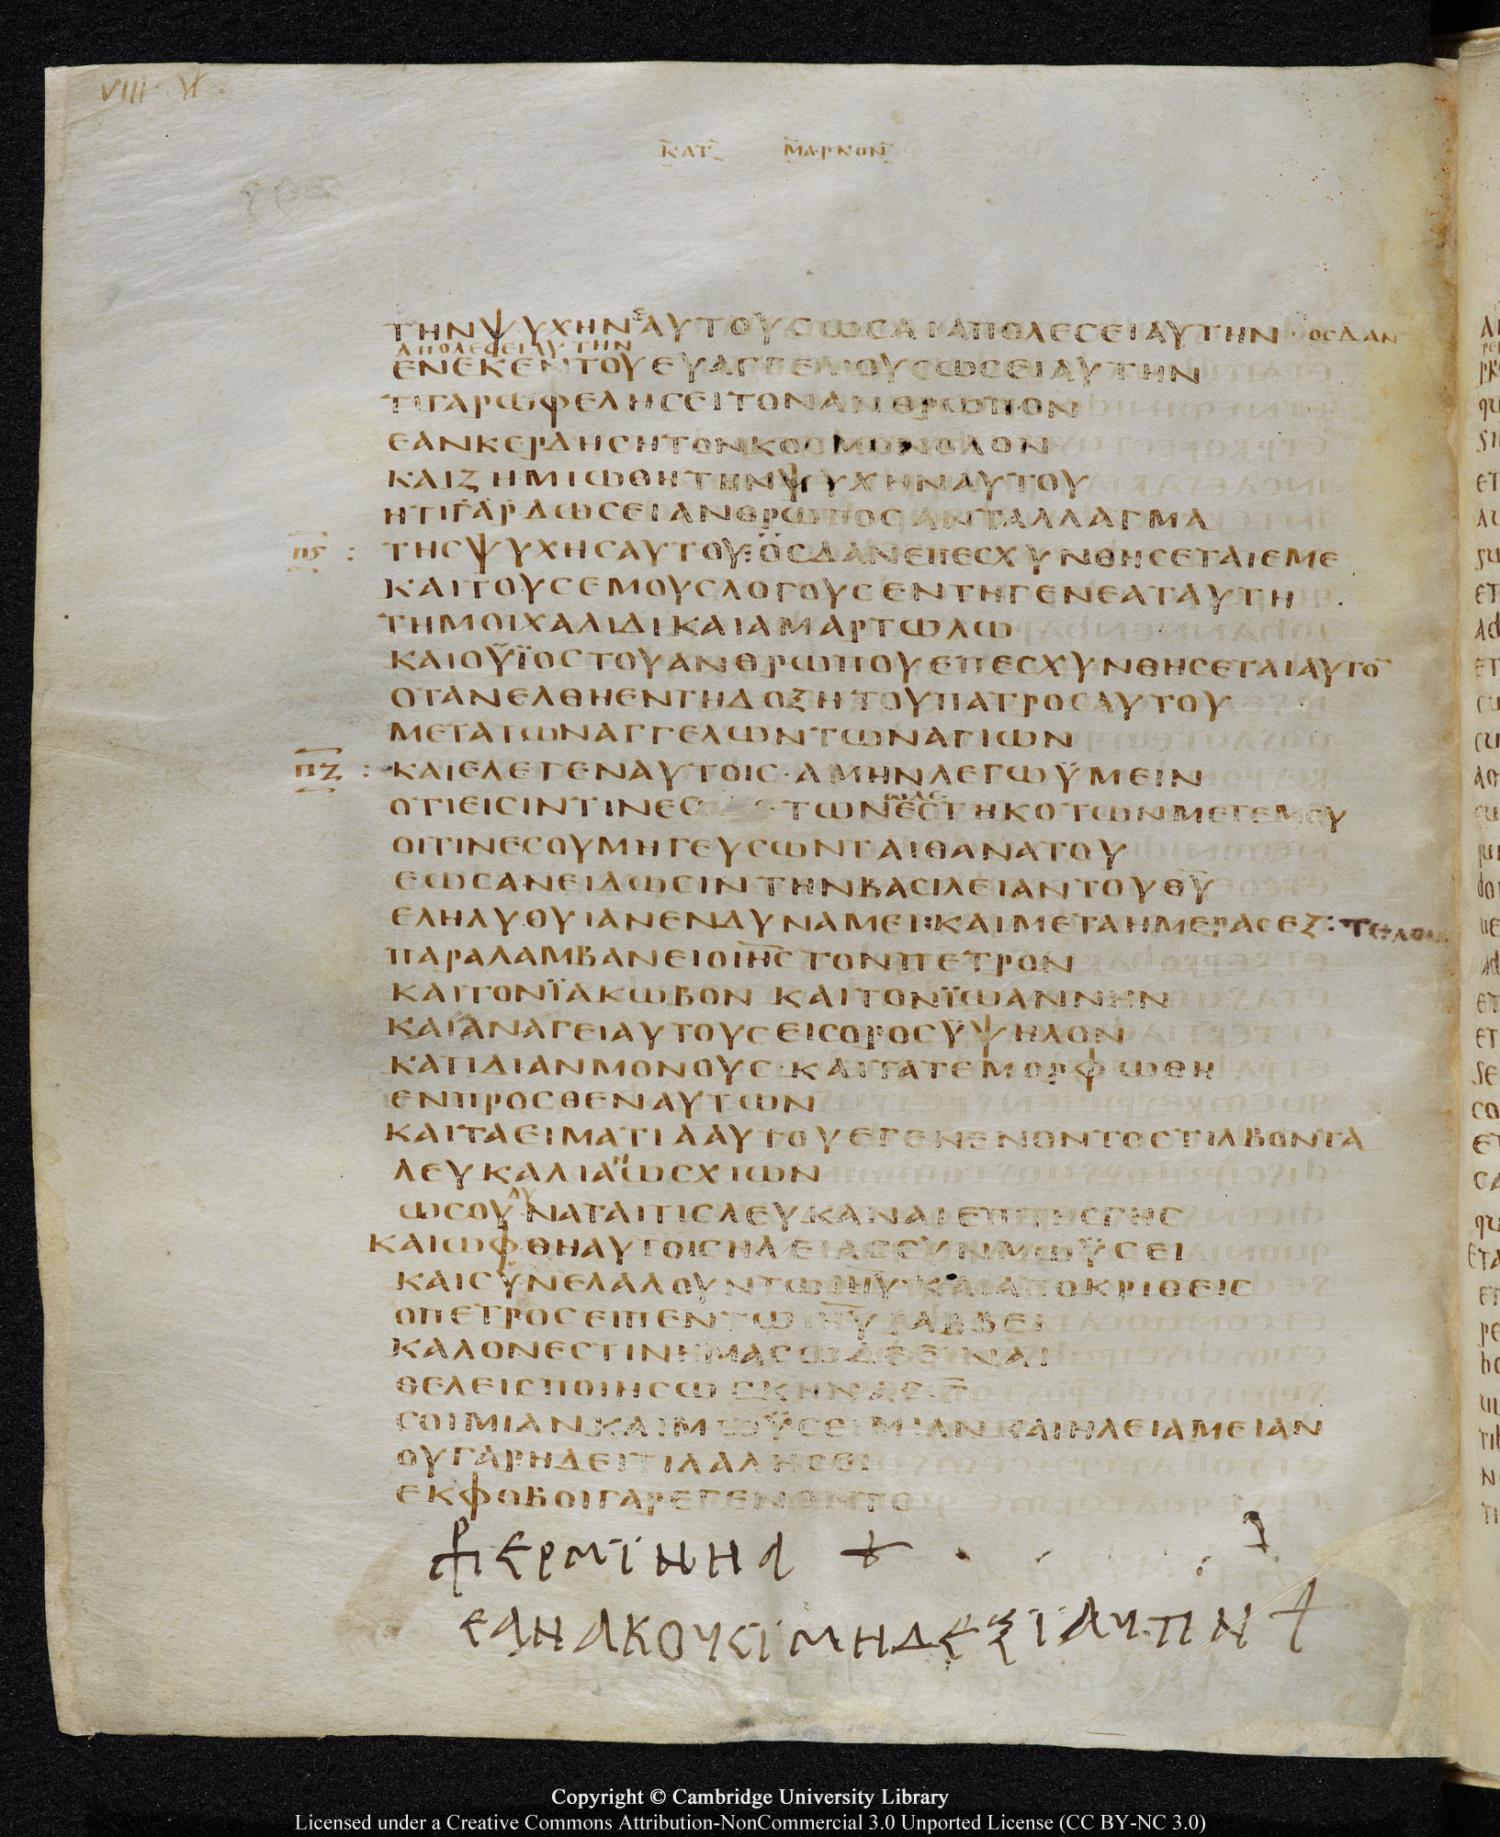 VIII
ΚΑΤ ΜΑΡΚΟΝ
ΤΗΝΨΥΧΗΝΕΑΥΤΟΥΣΩΣΑΙΑΠΟΛΕΣΕΙΑΥΤΗΝ ΟΣΔΑΝ
ΑΠΟΛΕΣΕΙΑΥΤΗΝ
ΕΝΕΚΕΝΤΟΥΕΥΑΓΓΕΛΙΟΥΣΩΣΕΙΑΥΤΗΝ
ΤΙΓΑΡΩΦΕΛΗΣΕΙΤΟΝΑΝΘΡΩΠΟΝ
ΕΑΝΚΕΡΔΗΣΗΤΟΝΚΟΣΜΟΝΟΛΟΝ
ΚΑΙΖΗΜΙΩΘΗΤΗΝΨΥΧΗΝΑΥΤΟΥ
ΗΤΙΓΑΡΔΩΣΕΙΑΝΘΡΩΠΟΣΑΝΤΑΛΛΑΓΜΑ
ΠϚ : ΤΗΣΨΥΧΗΣΑΥΤΟΥ:ΟΣΔΑΝΕΠΕΣΧΥΝΘΗΣΕΤΑΙΕΜΕ
ΚΑΙΤΟΥΣΕΜΟΥΣΛΟΓΟΥΣΕΝΤΗΓΕΝΕΑΤΑΥΤΗ
ΤΗΜΟΙΧΑΛΙΔΙΚΑΙΑΜΑΡΤΩΛΩ
ΚΑΙΟΥΪΟΣΤΟΥΑΝΘΡΩΠΟΥΕΠΕΣΧΥΝΘΗΣΕΤΑΙΑΥΤΟ̅
ΟΤΑΝΕΛΘΗΕΝΤΗΔΟΞΗΤΟΥΠΑΤΡΟΣΑΥΤΟΥ
ΜΕΤΑΤΩΝΑΓΓΕΛΩΝΤΩΝΑΓΙΩΝ
ΠΖ : ΚΑΙΕΛΕΓΕΝΑΥΤΟΙΣ·ΑΜΗΝΛΕΓΩΫΜΕΙΝ
ΟΤΙΕΙΣΙΝΤΙΝΕΣ ΤΩΝΕΣΤΗΚΟΤΩΝΜΕΤΕΜΟΥ
ΟΙΤΙΝΕΣΟΥΜΗΓΕΥΣΩΝΤΑΙΘΑΝΑΤΟΥ
ΕΩΣΑΝΕΙΔΩΣΙΝΤΗΝΒΑΣΙΛΕΙΑΝΤΟΥΘ̅Υ̅
ΕΛΗΛΥΘΥΙΑΝΕΝΔΥΝΑΜΕΙ:ΚΑΙΜΕΤΑΗΜΕΡΑΣΕΖ:
ΠΑΡΑΛΑΜΒΑΝΕΙΟΙ̅Η̅Σ̅ΤΟΝΠΕΤΡΟΝ
ΚΑΙΤΟΝΪΑΚΩΒΟΝ ΚΑΙΤΟΝΪΩΑΝΝΗΝ
ΚΑΙΑΝΑΓΕΙΑΥΤΟΥΣΕΙΣΟΡΟΣΫΨΗΛΟΝ
ΚΑΤΙΔΙΑΝΜΟΝΟΥΣ·ΚΑΙΤΑΤΕΜΟΡΦΩΘΗ
ΕΝΠΡΟΣΘΕΝΑΥΤΩΝ
ΚΑΙΤΑΕΙΜΑΤΙΑΑΥΤΟΥΕΓΕΝΕΝΟΝΤΟΣΤΙΛΒΟΝΤΑ
ΛΕΥΚΑΛΙΑΝΩΣΧΙΩΝ
ΩΣΟΥΔΥΝΑΤΑΙΤΙΣΛΕΥΚΑΝΑΙΕΠΙΤΗΣΓΗΣ
ΚΑΙΩΦΘΗΑΥΤΟΙΣΗΛΕΙΑΣΣΥΝΜΩΫΣΕΙ
ΚΑΙΣΥΝΕΛΑΛΟΥΝΤΩΙ̅Η̅Υ̅·ΚΑΙΑΠΟΚΡΙΘΕΙΣ
ΟΠΕΤΡΟΣΕΙΠΕΝΤΩΙ̅Η̅Υ̅ΡΑΒΒΕΙ
ΚΑΛΟΝΕΣΤΙΝΗΜΑΣΩΔΕΕΙΝΑΙ
ΘΕΛΕΙΣΠΟΙΗΣΩΣΚΗΝΑΣΓ̅
ΣΟΙΜΙΑΝΚΑΙΜΩΫΣΕΙΜΙΑΝΚΑΙΗΛΕΙΑΜΕΙΑΝ
ΟΥΓΑΡΗΔΕΙΤΙΛΑΛΗΣΕΙ
ΕΚΦΟΒΟΙΓΑΡΕΓΕΝΟΝΤΟ
ΕΡΜΙΝΗΑ +
ΕΑΝΑΚΟΥΣΙΜΗΔΕΞΙΑΥΠΙΝ +
Copyright © Cambridge University Library
Licensed under a Creative Commons Attribution-NonCommercial 3.0 Unported License (CC BY-NC 3.0)